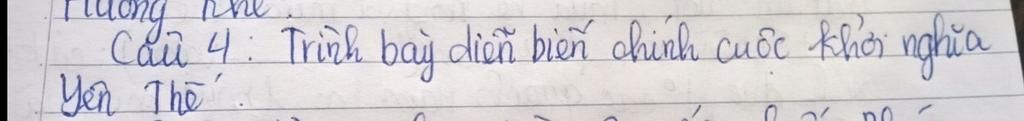 Hương Khê.
Câu 4: Trình bày diễn biến chính cuộc khởi nghĩa
Yên Thế.